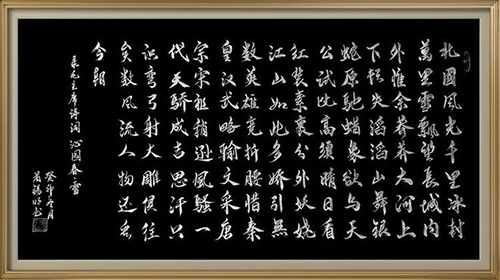 北國風光千里冰封
萬里雪飄望長城内
外惟余莽莽大河上
下頓失滔滔山舞銀
蛇原馳蠟象欲與天
公試比高須晴日看
紅裝素裹分外妖嬈
江山如此多嬌引無
數英雄竞折腰惜秦
皇漢武略輸文采唐
宗宋祖稍遜風騷一
代天驕成吉思汗只
識彎弓射大雕俱往
矣數風流人物还看
今朝
录毛主席詩詞 沁園春雪
癸卯月
书